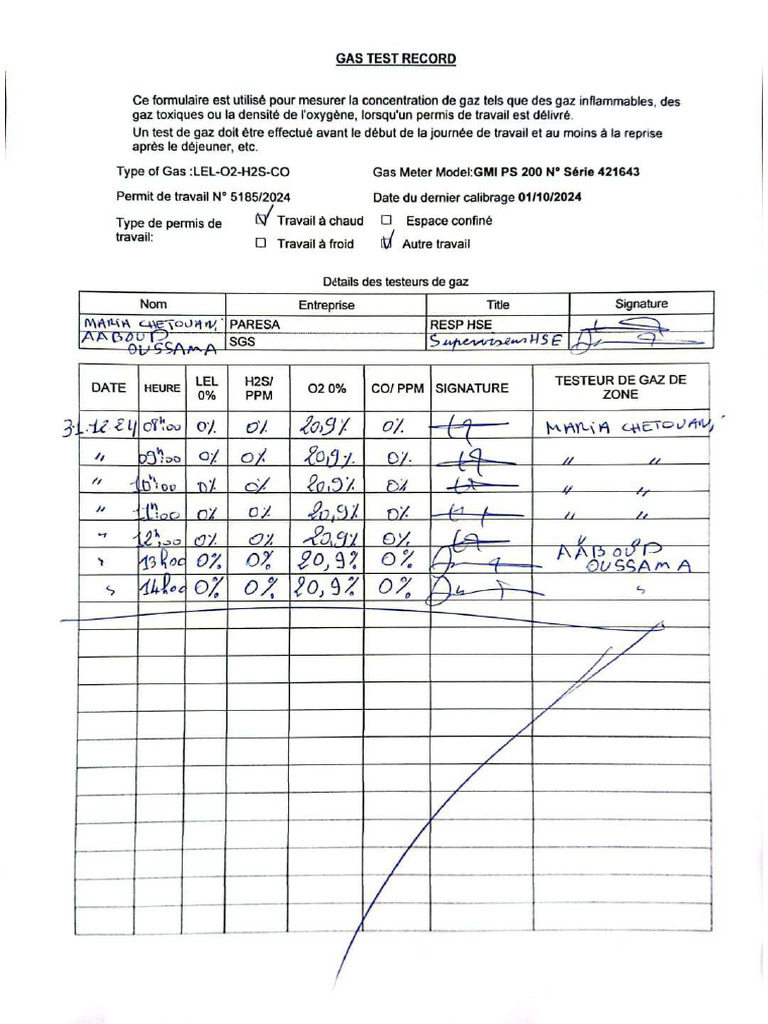 GAS TEST RECORD
Ce formulaire est utilisé pour mesurer la concentration de gaz tels que des gaz inflammables, des
gaz toxiques ou la densité de l'oxygène, lorsqu'un permis de travail est délivré.
Un test de gaz doit être effectué avant le début de la journée de travail et au moins à la reprise
après le déjeuner, etc.
Type of Gas :LEL-O2-H2S-CO Gas Meter Model:GMI PS 200 N° Série 421643
Permit de travail N° 5185/2024 Date du dernier calibrage 01/10/2024
Type de permis de travail: Travail à chaud Espace confiné
Travail à froid Autre travail
Détails des testeurs de gaz
Nom Entreprise Title Signature
MARIA CHETOUANI PARESA RESP HSE
AABOUD OUSSAMA SGS Superviseur HSE
DATE HEURE LEL 0% H2S/ PPM O2 0% CO/ PPM SIGNATURE TESTEUR DE GAZ DE ZONE
31.12.24 08h00 0% 0% 20,9% 0% MARIA CHETOUANI
" 09h00 0% 0% 20,9% 0% " "
" 10h00 0% 0% 20,9% 0% " "
" 11h00 0% 0% 20,9% 0% " "
" 12h00 0% 0% 20,9% 0% " "
" 13h00 0% 0% 20,9% 0% AABOUD OUSSAMA
" 14h00 0% 0% 20,9% 0% "